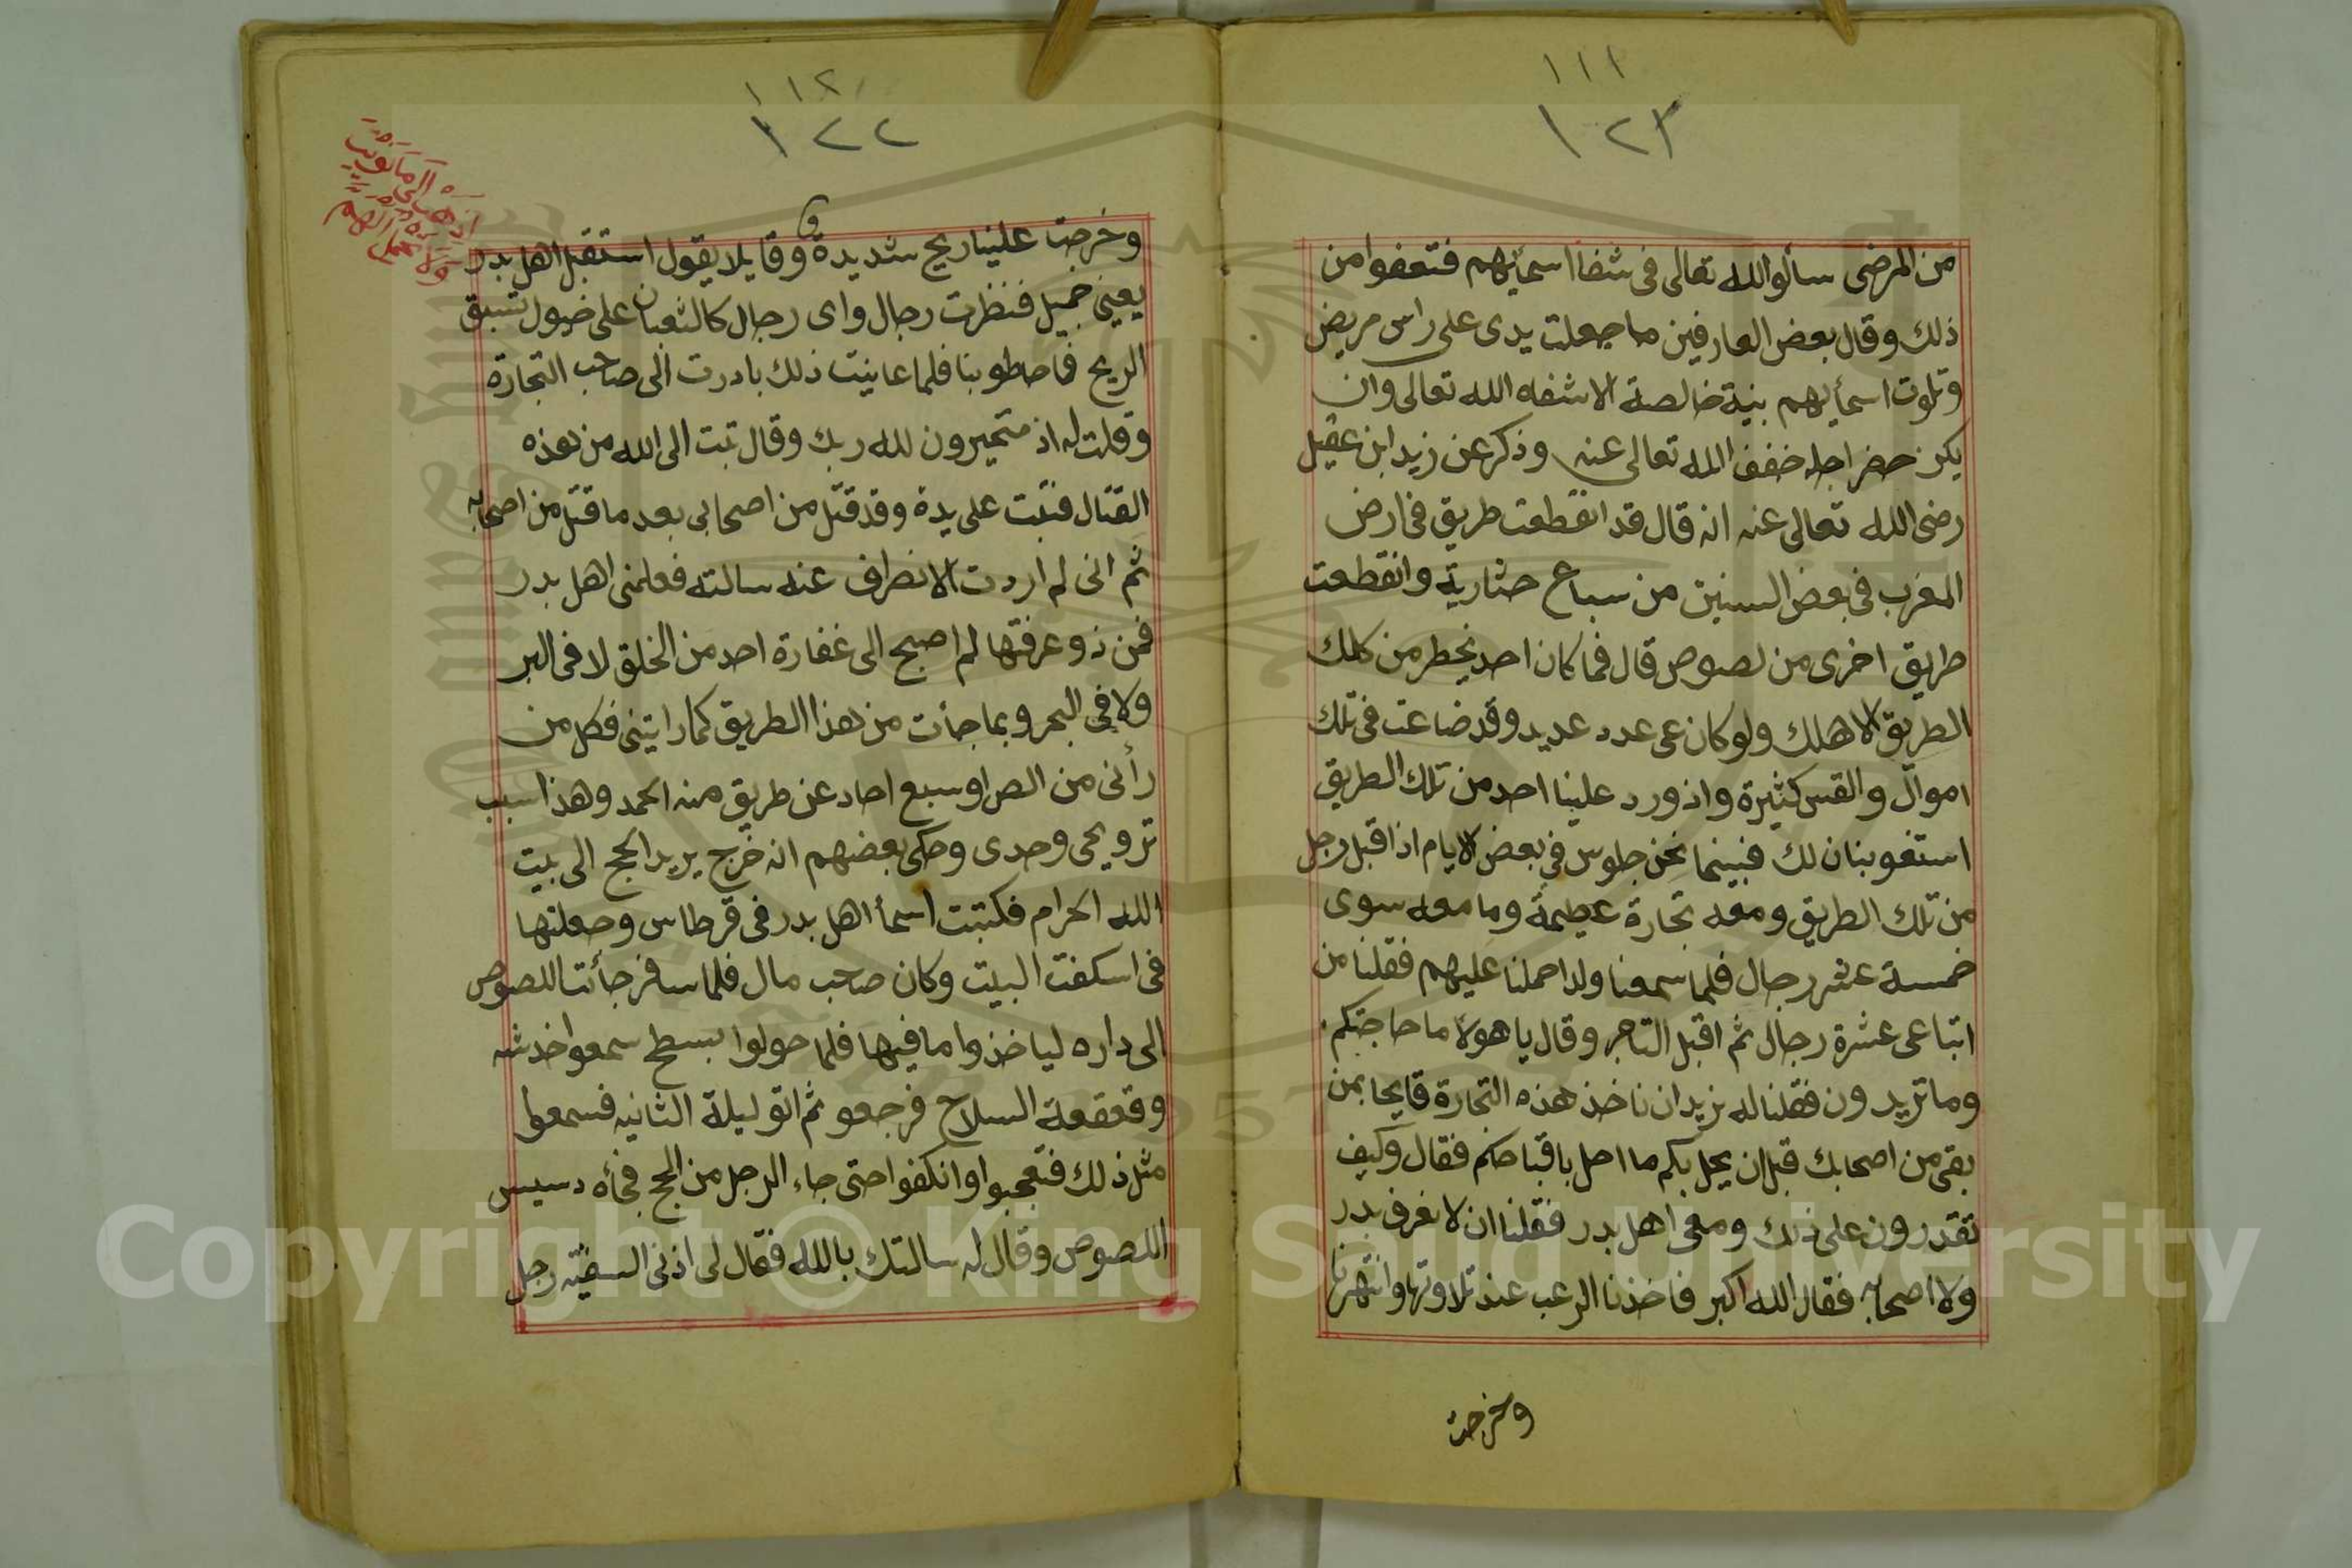 ١١١
١٢٣
من المرضى سألوالله تعالى فى شفاا اسمأيهم فتعفوا من
ذلك وقال بعض العارفين ما جعلت يدى على راس مريض
وتلوت اسمأيهم بنية خالصة الا شفاه الله تعالى وان
يكن حضر اجله خفف الله تعالى عنه وذكر عن زيد ابن عقيل
رضى الله تعالى عنه انه قال قد انقطعت طريق فى ارض
المغرب فى بعض السنين من سباع ضارية وانقطعت
طريق اخرى من لصوص قال فما كان احد يخطر من كلك
الطريق الا هلك ولو كان عى عدد عديد وقد ضاعت فى تلك
اموال والقس كثيرة واذ ورد علينا احد من تلك الطريق
استفو بنان لك فبينما نحن جلوس فى بعض الايام اذا قبل رجل
من تلك الطريق ومعه تجارة عظيمة وما معه سوى
خمسة عشر رجال فلما سمعنا ولدا حملنا عليهم فقلنا من
اتباعى عشرة رجال ثم اقبل التاجر وقال يا هولأ ما حاجتكم
وما تريدون فقلنا له نريد ان ناخذ هذه التجارة بمن
بقى من اصحابك قبل ان يحل بكم ما احل فقال وكيف
تقدرون على ذلك ومعى اهل بدر فقلنا ان لا نعرف بدر
ولا اصحابه فقال الله اكبر فاخذنا الرعب عند تلاوتها وانتهرنا
وخرجت
١١٢
١٢٢
وخرجت علينا ريح شديدة وقايلا يقول استقبل اهل بدر
يعينى جميل فنظرت رجال واى رجال كالثعبان على خيول تسبق
الريح فاحطو بنا فلما عاينت ذلك بادرت الى صاحب التجارة
وقلت له اذ متحيرون لله ربك وقال تبت الى الله من هذه
القتال فتبت على يدة وقد قتل من اصحابى بعد ما قتل من اصحابه
ثم انى لم اردت الانصراف عنه سالته فعلمنى اهل بدر
فمن ذو عرفتها لم اصبح الى غفارة احد من الخلق لا فى البر
ولا فى البحر وبما جأت من هذا الطريق كما رايتنى فكل من
رأنى من الص او سبع احاد عن طريق منه الحمد وهذا سبب
ترويحى وحدى وحكى بعضهم انه خرج يريد الحج الى بيت
الله الحرام فكتبت اسمأ اهل بدر فى قرطاس وجعلتها
فى اسكفت البيت وكان صاحب مال فلما سافر جأت اللصوص
الى داره لياخذوا ما فيها فلما حولوا بسطح سمعوا خدشه
وقعقعة السلاح فرجعو ثم اتو ليلة الثانيه فسمعوا
مثل ذلك فتعجبوا وانكفوا حتى جاء الرجل من الحج فجأه دسيس
اللصوص وقال له سالتك بالله فقال لى اذنى السفيه رجل
Copyright © King Saud University